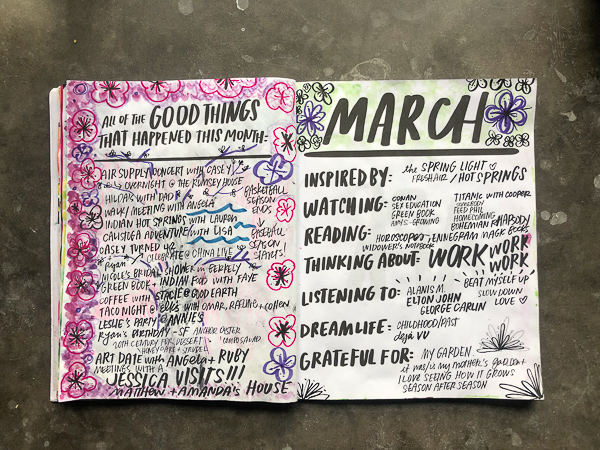 ALL OF THE GOOD THINGS
THAT HAPPENED THIS MONTH:
AIR SUPPLY CONCERT WITH CASEY
OVERNIGHT @ THE RUMSEY HOUSE
HILDA'S WITH DAD
WALK/MEETING WITH ANGELA
INDIAN HOT SPRINGS WITH LAUREN
CALISTOGA ADVENTURE WITH LISA
CASEY TURNED 42
CELEBRATE @ CHINA LIVE
BASKETBALL
SEASON
ENDS
BASEBALL
SEASON
STARTS!
Ryan
NICOLE'S BRIDAL SHOWER IN BERKELY
GREEN BOOK + INDIAN FOOD WITH FAYE
COFFEE WITH STACIE @ GOOD EARTH
TACO NIGHT @ ELKS WITH OMAR, + COLLEEN
LESLIE'S PARTY @ ANNIES
Ryan's BIRTHDAY - SF ANCHOR OYSTER
20TH CENTURY DESSERT
ART DATE WITH ANGELA + RUBY
MEETINGS WITH A
JESSICA VISITS!!!
MATTHEW + AMANDA'S HOUSE
MARCH
INSPIRED BY: the SPRING LIGHT
FRESH AIR / HOT SPRINGS
WATCHING: CONAN
SEX EDUCATION
GREEN BOOK
TITANIC WITH COOPER
HOMECOMING
BOHEMIAN RHAPSODY
READING: HOROSCOPES ENNEGRAM MAGIC BOOKS
WIDOWER'S NOTEBOOK
THINKING ABOUT: WORK WORK
WORK
LISTENING TO: ALANIS M.
ELTON JOHN
GEORGE CARLIN
BEAT MYSELF UP
SLOW DOWN
LOVE
DREAMLIFE: CHILDHOOD/PAST
deja VU
GRATEFUL FOR: MY GARDEN.
it was my mother's garden +
I LOVE SEEING HOW IT GROWS
SEASON AFTER SEASON